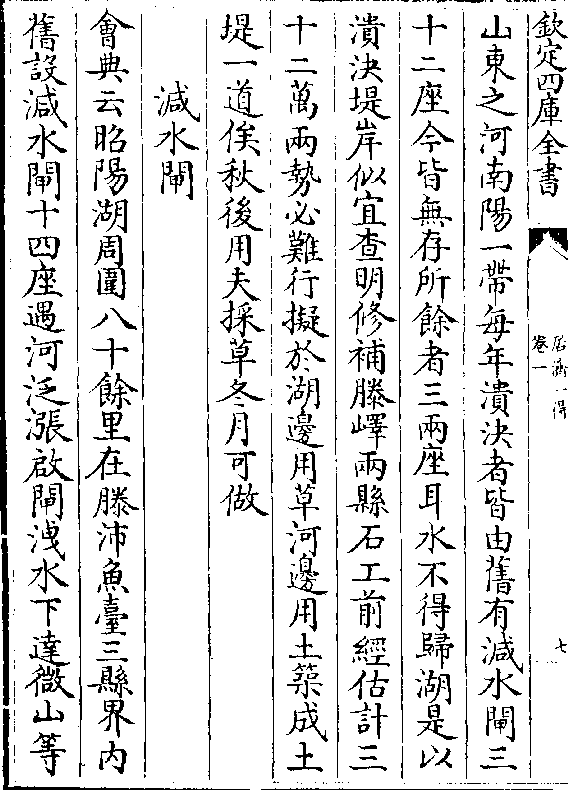 欽定四庫全書
居濟一得
卷一
七
山東之河南陽一帶每年潰決者皆由舊有減水閘三
十二座今皆無存所餘者三兩座耳水不得歸湖是以
潰決堤岸似宜查明修補滕嶧兩縣石工前經估計三
十二萬兩勢必難行擬於湖邊用草河邊用土築成土
堤一道俟秋後用夫採草冬月可做
減水閘
會典云昭陽湖周圍八十餘里在滕沛魚臺三縣界内
舊設減水閘十四座遇河泛漲啟閘洩水下達微山等